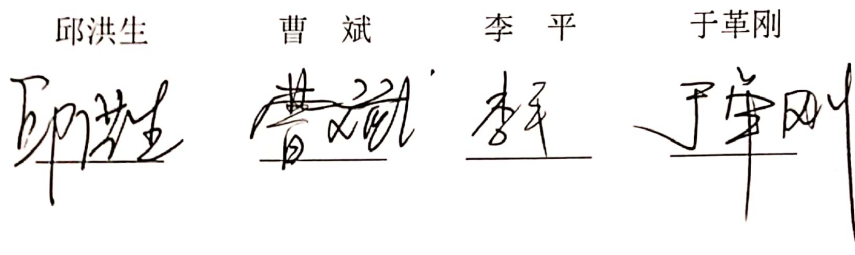 邱洪生 曹 斌 李 平 于革刚
邱洪生 曹斌 李平 于革刚